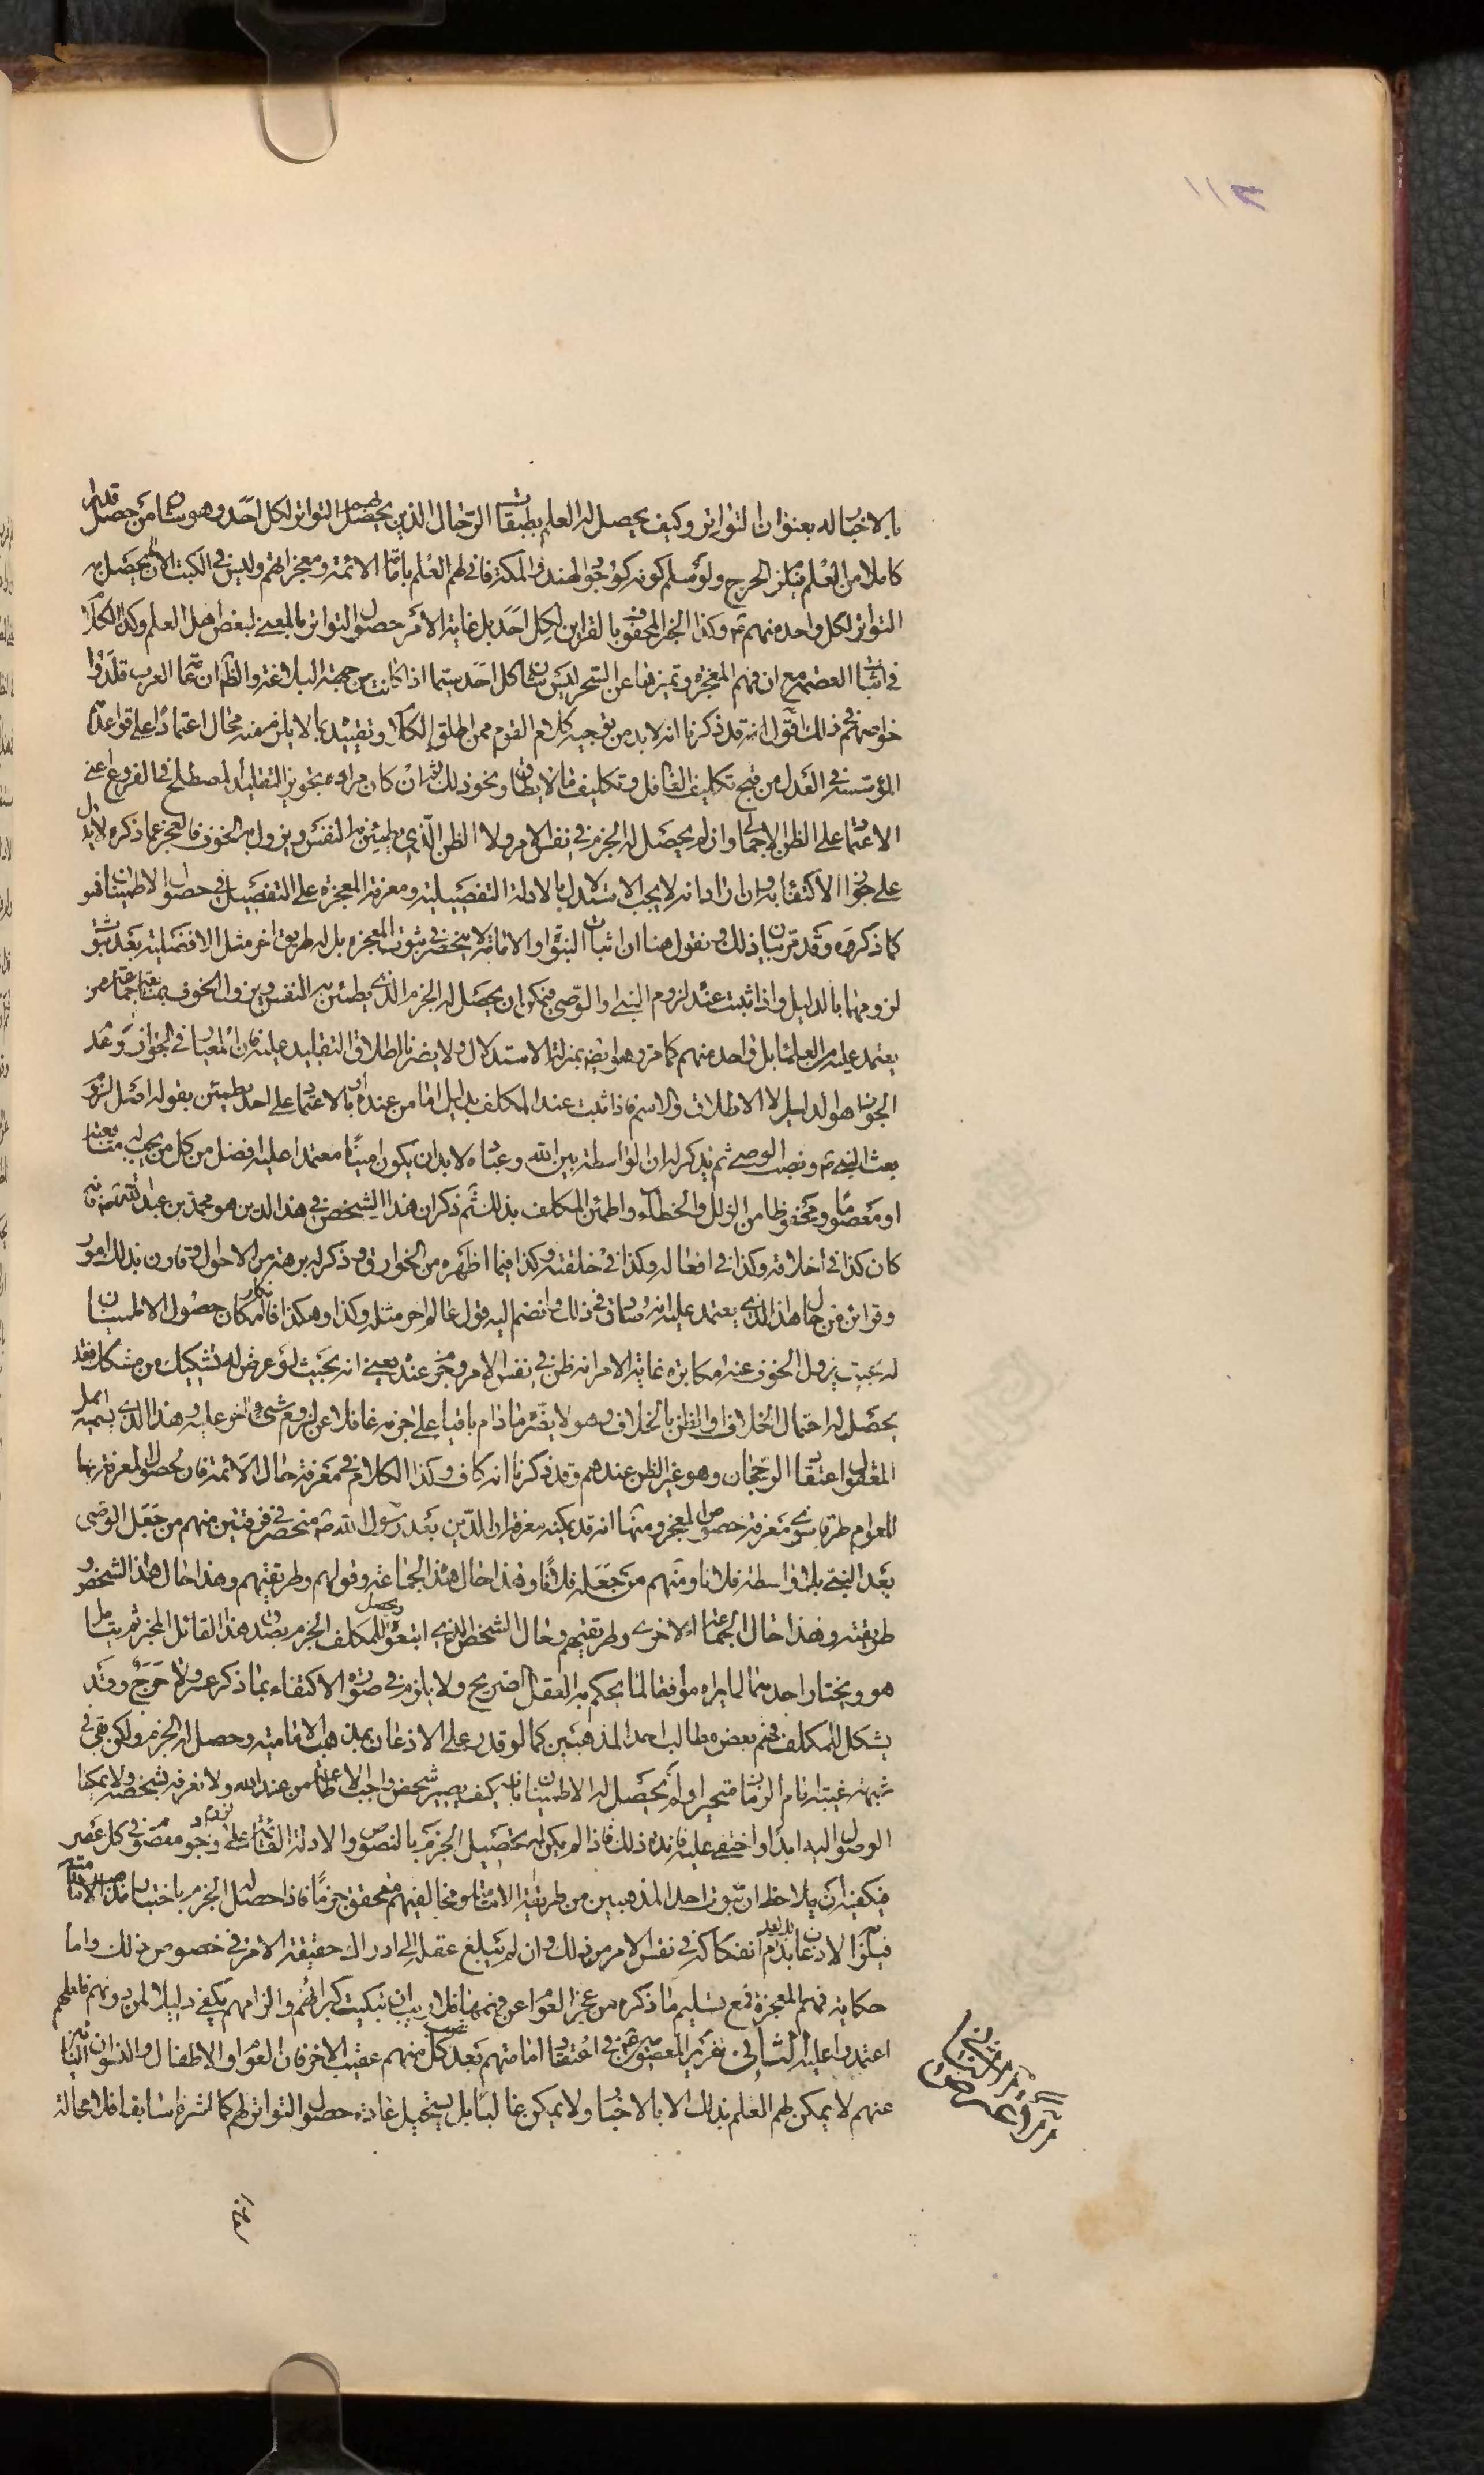 ١١٣
بالاخبار له بعنوان التواتر وكيف يحصل له العلم بطبقات الرجال الذين يحصل بهم التواتر لكل احد وهو شان من حصل قدرا
كاملا من العلم فيلزم الحرج ولو سلم كونه كوجود الهند والمكة فانى لهم العلم بامامة الائمة ومعجزاتهم وليس في الكتب الا ان يحصل به
التواتر لكل واحد منهم وكذا الخبر المحفوف بالقراين لكل احد بل غاية الامر حصول التواتر بالمعنى لبعض اهل العلم وكذا الكلام
في اثبات العصمة مع ان فهم المعجزة وتميزها عن السحر ليس شان كل احد سيما اذا كانت من جهة البلاغة والظ ان عامة العرب قلدوا
خواصهم في ذلك اقول انه قد ذكرنا انه لا بد من توجيه كلام القوم ممن اطلق الكلام وتقييده بما لا يلزم منه محال اعتمادا على قواعدنا
المؤسسة في العدل من قبح تكليف الغافل وتكليف ما لا يطاق ونحو ذلك ثم ان كان مراده بتجويز التقليد المصطلح في الفروع اعني
الاعتماد على الظن الاجمالي وان لم يحصل له الجزم في نفس الامر ولا الظن الذي يطمئن به النفس ويزول به الخوف فالعجز عما ذكره لا يدل
على جواز الاكتفاء به وان اراد انه لا يجب الاستدلال بالادلة التفصيلية ومعرفة المعجزة على التفصيل في حصول الاطمينان فهو
كما ذكروه وقد مر بيان ذلك ونقول هنا ان اثبات النبوة او الامامة لا ينحصر في ثبوت المعجزة بل له طريق اخر مثل الافضلية بعد ثبوت
لزومهما بالدليل واذا ثبت عنده لزوم النبي او الوصي فيمكن ان يحصل له الجزم الذي يطمئن به النفس ويزول الخوف بمتابعة جماعة من
يعتمد عليه من العلماء بل واحد منهم كما مر وهو ايضا بمنزلة الاستدلال ولا يضرنا اطلاق التقليد عليه فان المعيار في الجواز وعدم
الجواز هو الدليل لا الاطلاق والاسم فاذا ثبت عند المكلف بدليل اما من عنده او بالاعتماد على احد يطمئن بقوله اصل لزوم
بعث النبي ونصب الوصي ثم يذكر له ان الواسطة بين الله وعباده لا بد ان يكون امينا معتمدا عليه افضل من كل من يجب له متابعته
او معصوما ومحفوظا من الزلل والخطاء واطمئن المكلف بذلك ثم ذكر ان هذا الشخص في هذا الدين هو محمد بن عبد الله فانه
كان كذا في اخلاقه وكذا في افعاله وكذا في خلقته وكذا فيما اظهره من الخوارق وذكر له برهة من الاحوال وقارن بذلك امور
وقراين من حال هذا الذي يعتمد عليه انه صادق في ذلك وانضم اليه قول عالم اخر مثله وكذا وهكذا فانكار امكان حصول الاطمينان
له بحيث يزول الخوف عنه مكابرة غاية الامر انه ظن في نفس الامر وجزم عنده يعني انه بحيث لو عرض له تشكيك من مشكك فقد
يحصل له احتمال الخلاف او الظن بالخلاف وهو لا يضره ما دام باقيا على جزمه غافلا عن لزوم شئ اخر عليه وهذا الذي يسميه اهل
المعقول اعتقاد الرجحان وهو غير الظن عندهم وقد ذكرنا انه كاف وكذا الكلام في معرفة حال الائمة فان لحصول المعرفة بها
للعوام طرقا سوى معرفة خصوص المعجز ومنها انه قد يمكنه معرفة ان الدين بعد رسول الله منحصر في فرقتين منهم من جعل الوصي
بعد النبي بلا واسطة فلانا ومنهم من جعله فلانا وهذا حال هذا الجماعة وقولهم وطريقتهم وهذا حال هذا الشخص و
طريقته وهذا حال الجماعة الاخرى وطريقتهم وحال الشخص الذي اتبعوه ويحصل للمكلف الجزم بصدق هذا القائل المخبر ثم يتامل
هو ويختار احدهما لما يراه موافقا لما يحكم به العقل الصريح ولا يلزم في صورة الاكتفاء بما ذكر عسر ولا حرج وقد
يشكل للمكلف فهم بعض مطالب احد المذهبين كما لو قدر على الاذعان بمذهب الامامية وحصل له الجزم ولكن بقي في
شبهة غيبة امام الزمان متحيرا ولم يحصل له الاطمينان بانه كيف يصير شخص واجب الاطاعة من عند الله ولا نعرفه بشخصه ولا يمكننا
الوصول اليه ابدا واختفى عليه فائدة ذلك فاذا لم يكن له تحصيل الجزم بالنصوص والادلة القائمة على لزوم وجود معصوم في كل عصر
فيكفيه ان يلاحظ ان ثبوت احد المذهبين من طريقة الامامية ومخالفيهم محقق جزما فاذا حصل له الجزم باختيار مذهب الامامية
فيلزم الاذعان بعدم انفكاكه في نفس الامر من ذلك وان لم يبلغ عقله الى ادراك حقيقة الامر في خصوص ذلك واما
حكاية فهم المعجزة فمع تسليم ما ذكره من عجز العوام عن فهمها فلا ريب ان تبكيت كبرائهم والزامهم يكفي دليلا لمن دونهم فلعلهم
اعتمدوا عليه الثاني تقرير المعصومين في اعتقاد امامتهم بعد نصب كل منهم عقيب الاخر فان العوام والاطفال والنسوان النائين
عنهم لا يمكن لهم العلم بذلك الا بالاخبار ولا يمكن غالبا بل يستحيل عادة حصول التواتر لهم كما اشرنا سابقا فلا محالة